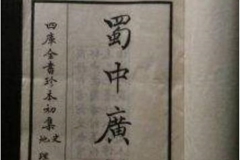 蜀中廣
四庫全書珍本初集史
地理